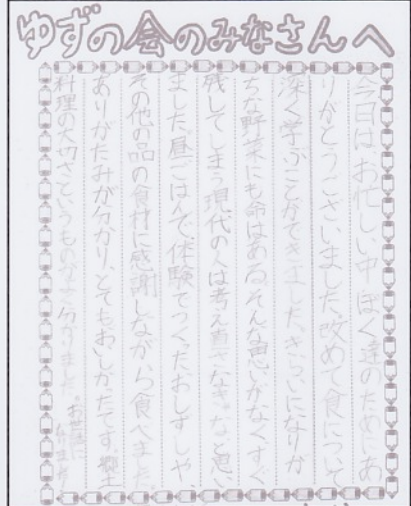 ゆずの会のみなさんへ
今日は、お忙しい中ぼく達のためにあ
りがとうございました。改めて食について
深く学ぶことができました。きらいになりが
ちな野菜にも命はある。そんな思いがなくすぐ
残してしまう現代の人は考え直さなきゃなと思い
ました。昼ごはんで体験でつくったおしずしや、
その他の品の食材に感謝しながら食べました。
ありがたみが分かり、とてもおいしかったです。郷土
料理の大切さというものがよく分かりました。
お世話に
なりました!